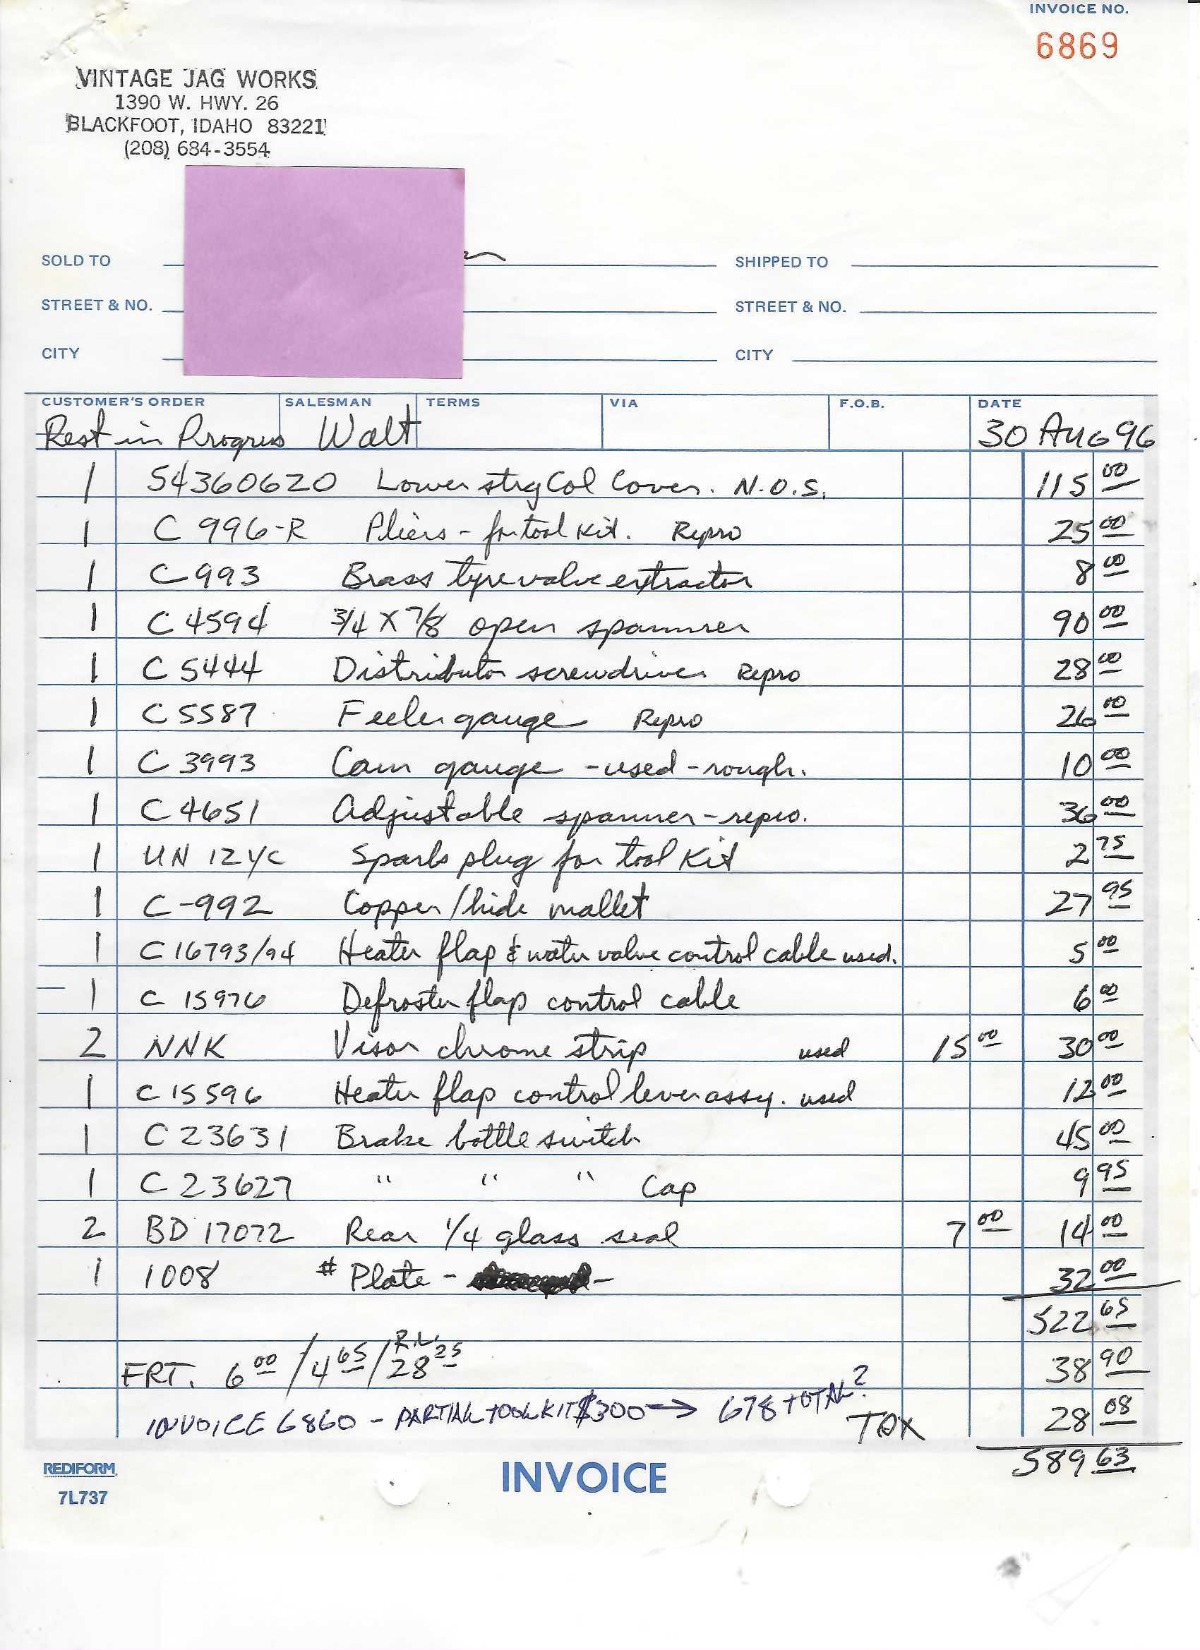 INVOICE NO.
6869
VINTAGE JAG WORKS
1390 W. HWY. 26
BLACKFOOT, IDAHO 83221
(208) 684-3554
SOLD TO SHIPPED TO
STREET & NO. STREET & NO.
CITY CITY
CUSTOMER'S ORDER SALESMAN TERMS VIA F.O.B. DATE
Rest in Progress Walt 30 Aug 96
1 54360620 Lower strg Col Cover. N.O.S. 115 00
1 C 996-R Pliers - for tool kit. Repro 25 00
1 C-993 Brass tyre valve extractor 8 00
1 C 4594 3/4 X 7/8 open spanner 90 00
1 C 5444 Distributor screwdriver Repro 28 00
1 C 5587 Feeler gauge Repro 26 00
1 C 3993 Cam gauge - used - rough. 10 00
1 C 4651 Adjustable spanner - repro. 36 00
1 UN 12Y/C Spark plug for tool Kit 2 75
1 C-992 Copper/hide mallet 27 95
1 C 16793/94 Heater flap & water valve control cable used. 5 00
1 C 15976 Defroster flap control cable 6 00
2 NNK Visor chrome strip used 15 00 30 00
1 C 15596 Heater flap control lever assy. used 12 00
1 C 23631 Brake bottle switch 45 00
1 C 23627 " " " Cap 9 95
2 BD 17072 Rear 1/4 glass seal 7 00 14 00
1 1008 # Plate - - 32 00
522 65
FRT. 6 00 / 4 65 / R.L. 28 25 38 90
INVOICE 6860 - PARTIAL TOOL KIT $300 → 678 TOTAL? TAX 28 08
589 63
REDIFORM
7L737
INVOICE